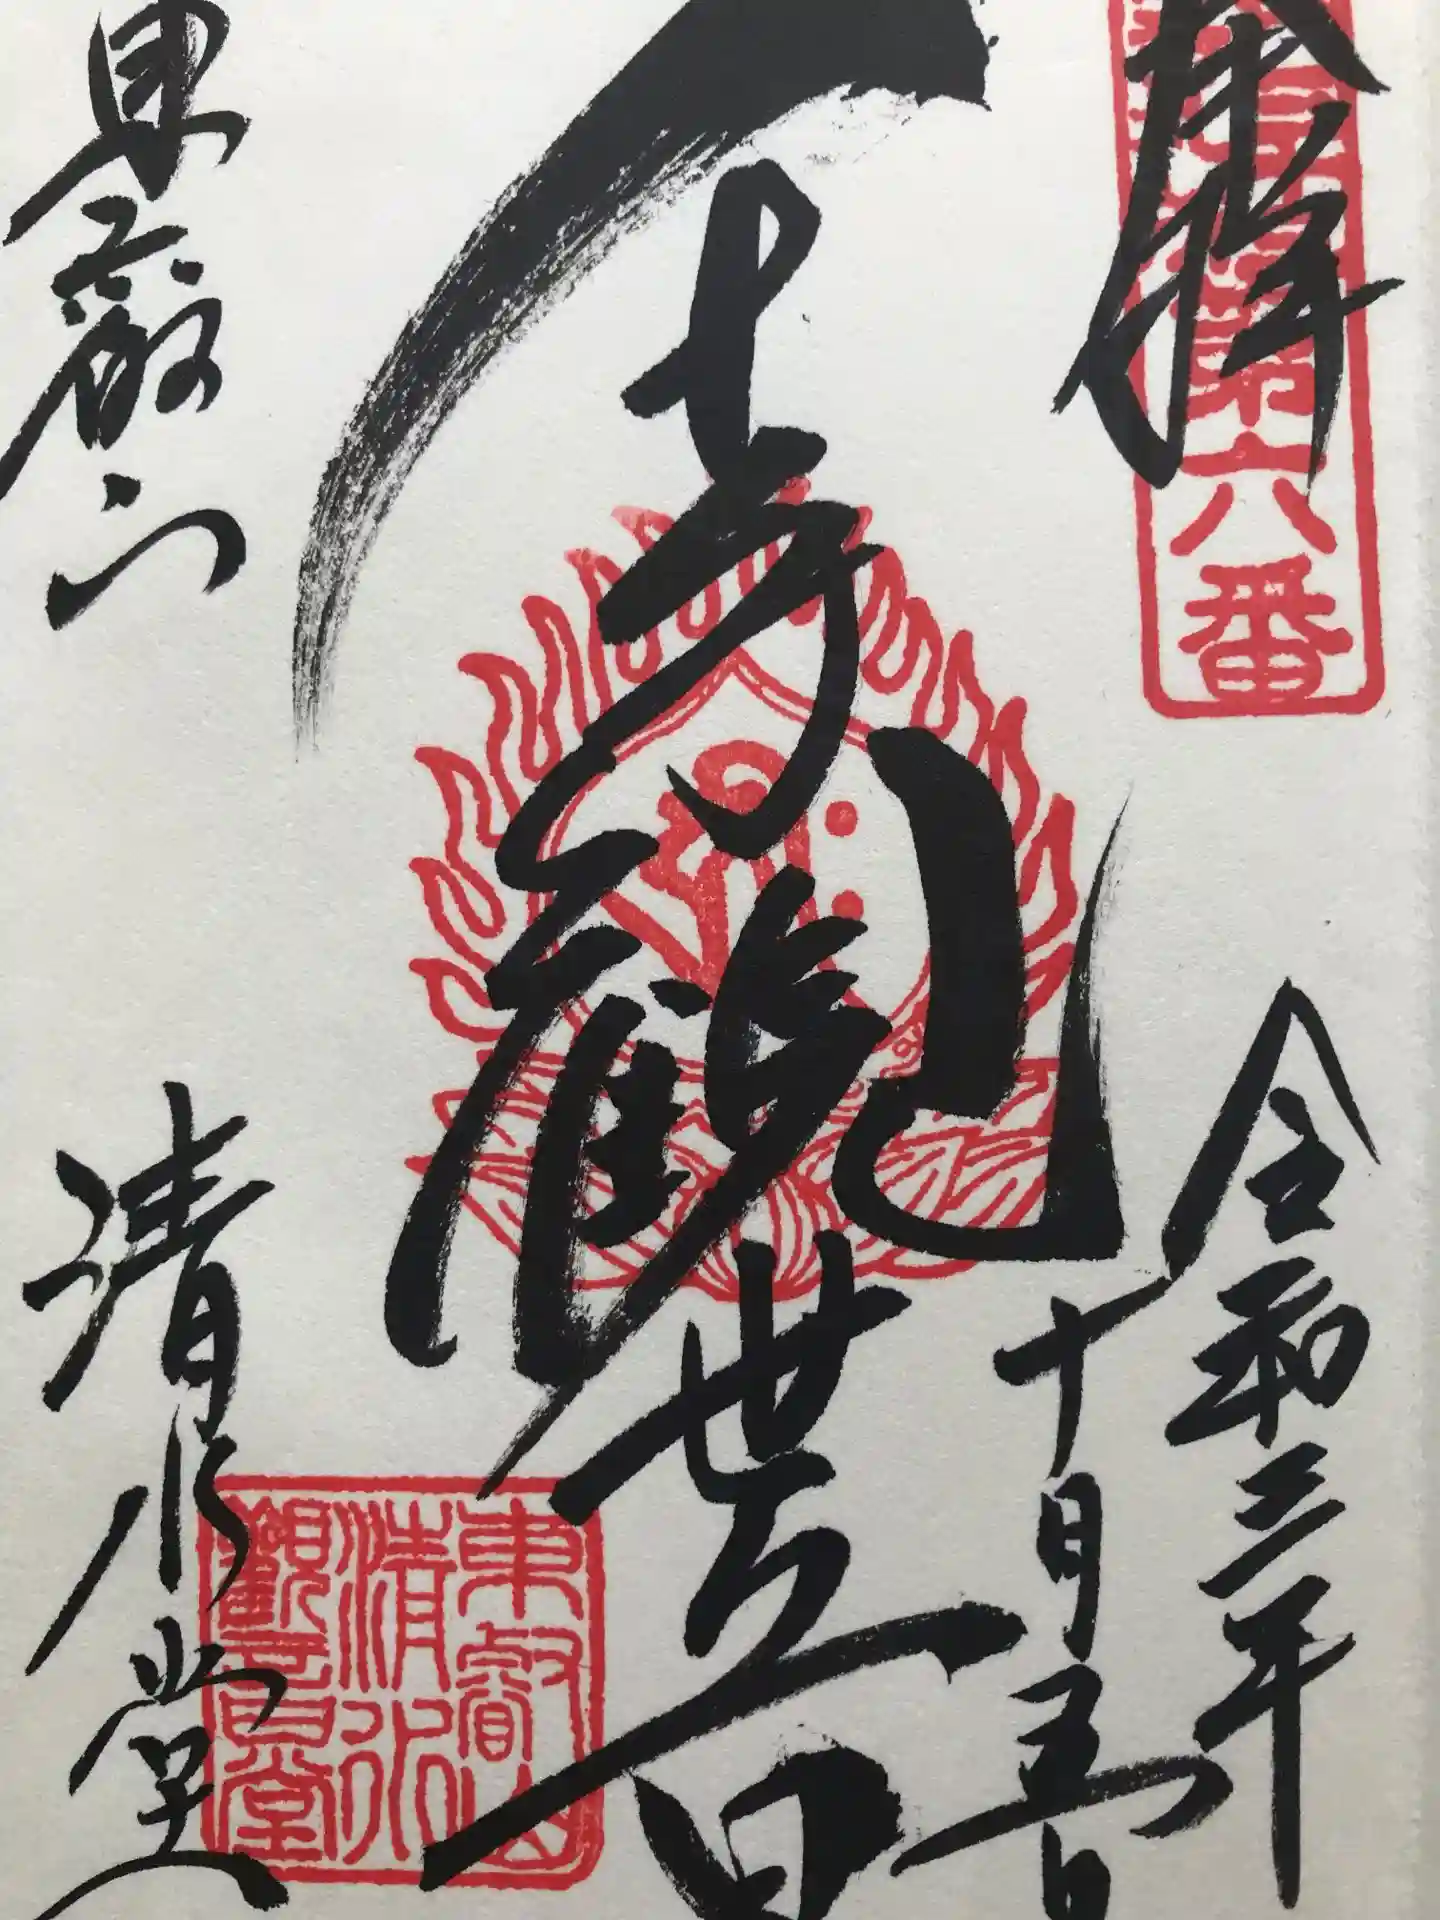 奉拝
第六番
令和三年
十月五日
千手観世音
東叡山
清水堂
東叡山
清水
観音堂